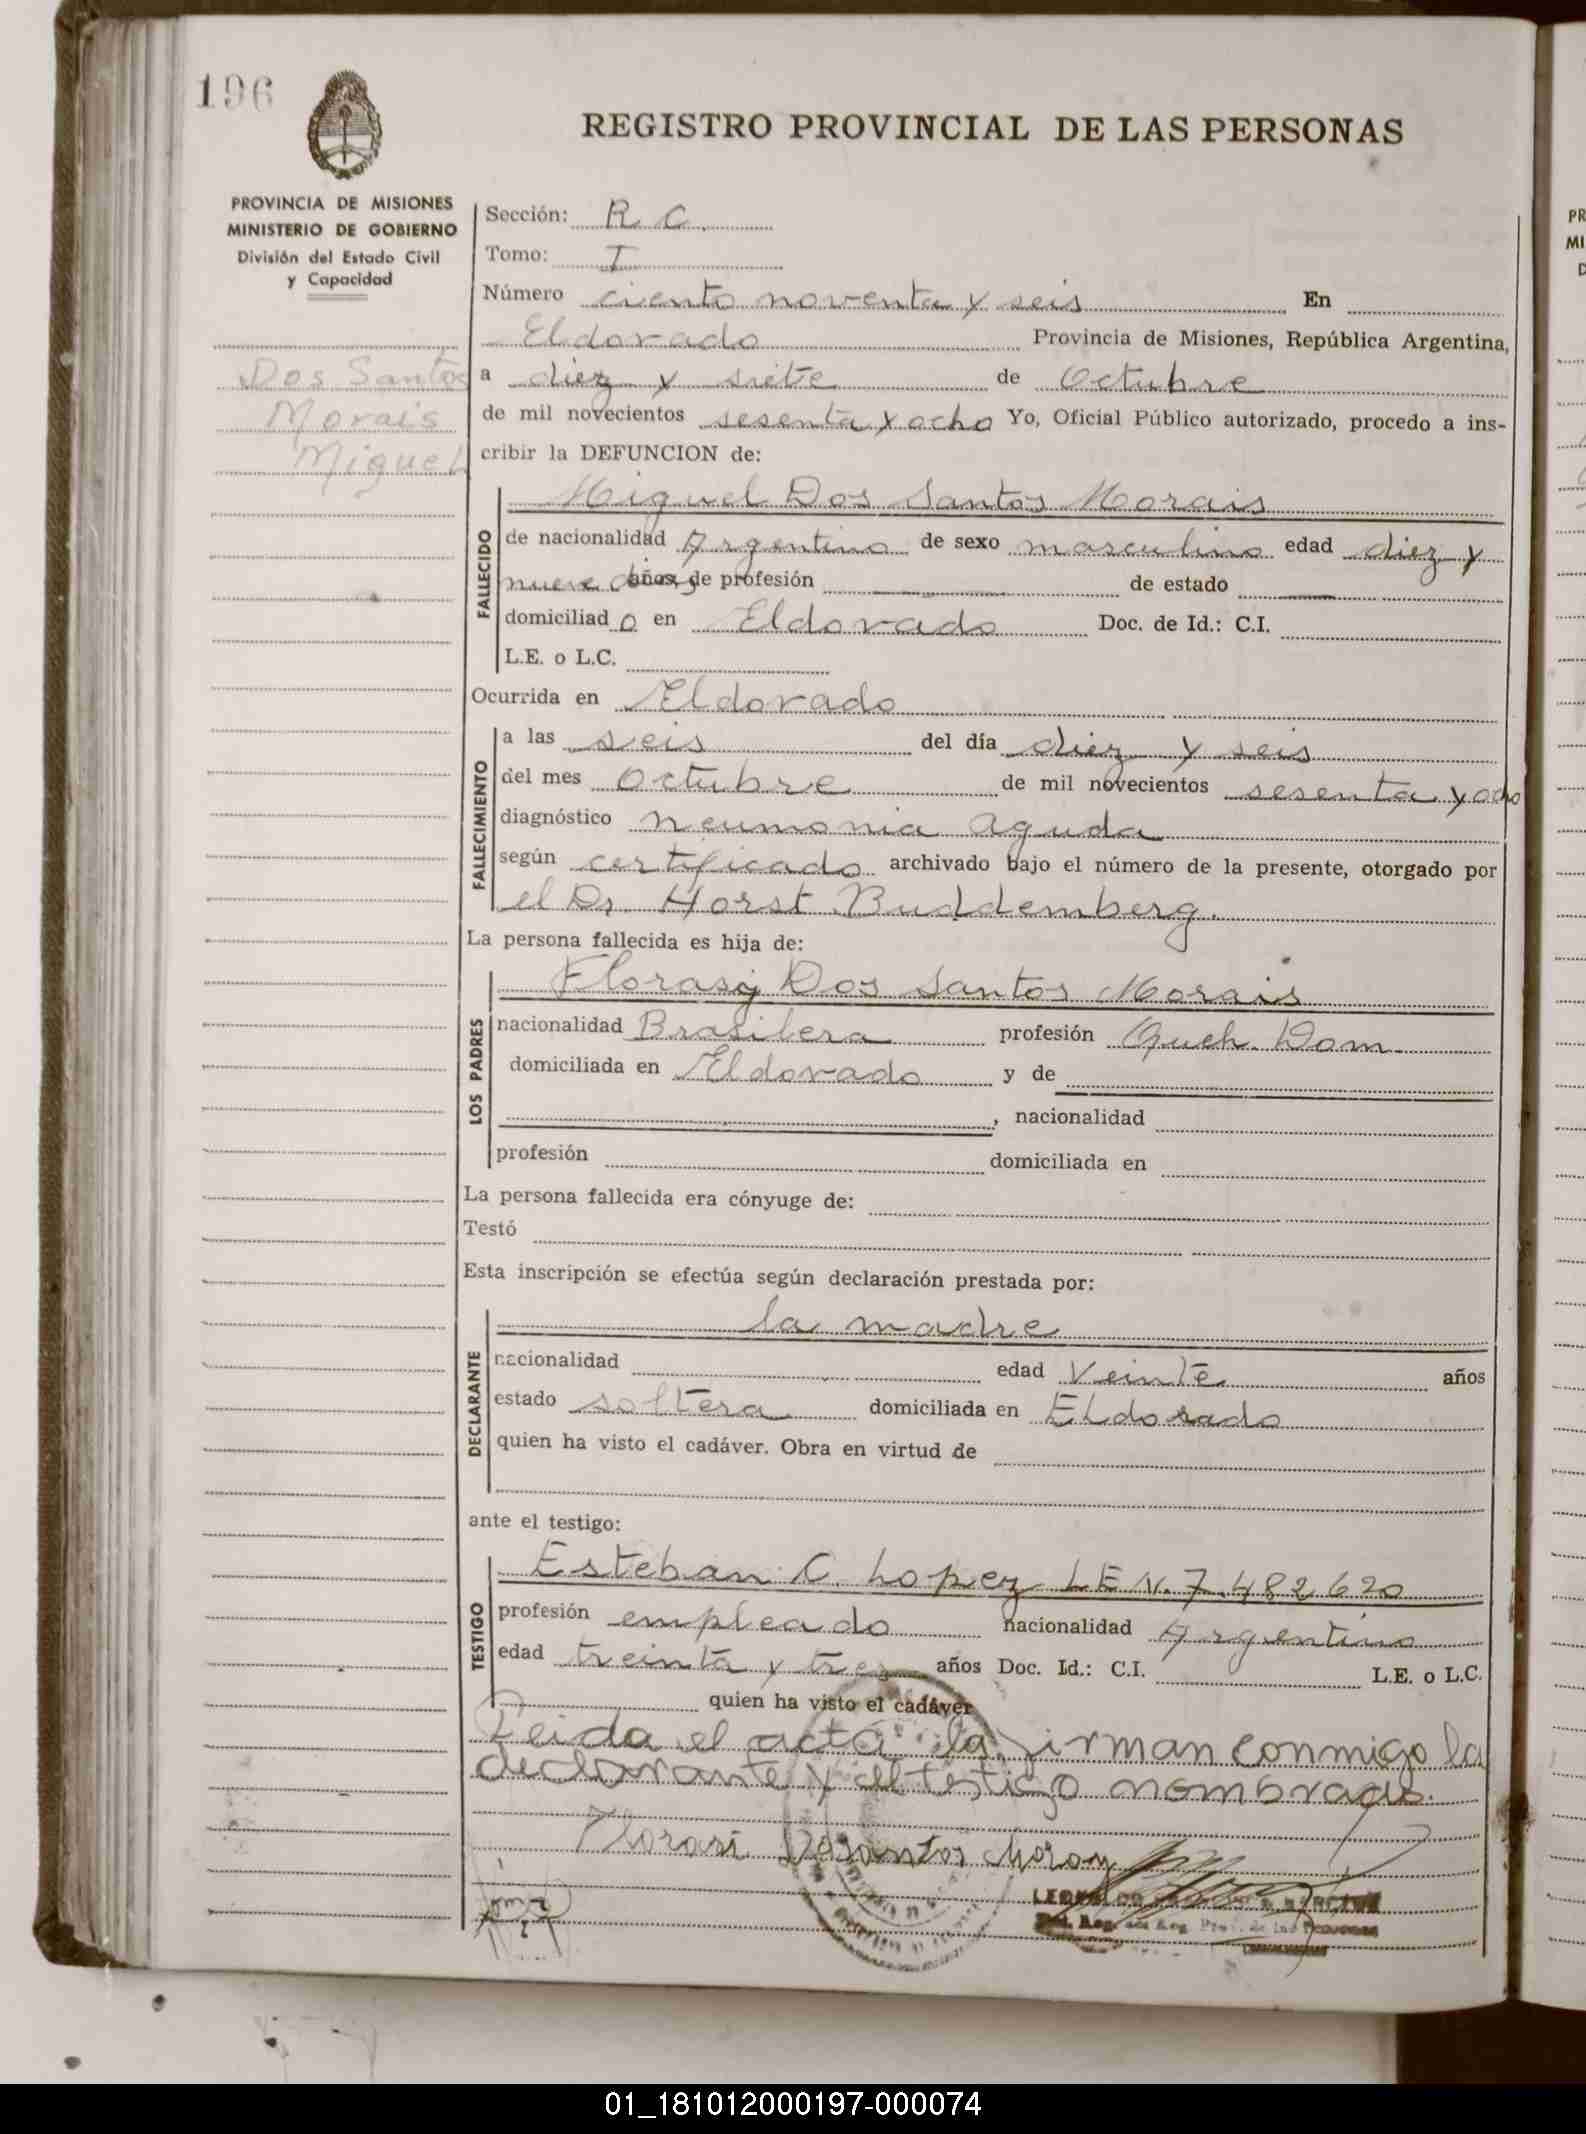 196
REGISTRO PROVINCIAL DE LAS PERSONAS
PROVINCIA DE MISIONES
MINISTERIO DE GOBIERNO
División del Estado Civil
y Capacidad
Dos Santos
Morais
Miguel
Sección: R C.
Tomo: I
Número ciento noventa y seis En
Eldorado Provincia de Misiones, República Argentina,
a diez y siete de Octubre
de mil novecientos sesenta y ocho Yo, Oficial Público autorizado, procedo a ins-
cribir la DEFUNCION de:
FALLECIDO
Miguel Dos Santos Morais
de nacionalidad Argentino de sexo masculino edad diez y
nueve días de profesión de estado
domiciliado en Eldorado Doc. de Id.: C.I.
L.E. o L.C.
Ocurrida en Eldorado
FALLECIMIENTO
a las seis del día diez y seis
del mes Octubre de mil novecientos sesenta y ocho
diagnóstico neumonia aguda
según certificado archivado bajo el número de la presente, otorgado por
el Dr. Horst Buddemberg.
La persona fallecida es hija de:
LOS PADRES
Florasy Dos Santos Morais
nacionalidad Brasilera profesión Queh. Dom.
domiciliada en Eldorado y de
, nacionalidad
profesión domiciliada en
La persona fallecida era cónyuge de:
Testó
Esta inscripción se efectúa según declaración prestada por:
DECLARANTE
la madre
nacionalidad edad Veinte años
estado soltera domiciliada en Eldorado
quien ha visto el cadáver. Obra en virtud de
ante el testigo:
TESTIGO
Esteban C. Lopez L E N. 7.482620
profesión empleado nacionalidad Argentino
edad treinta y tres años Doc. Id.: C.I. L.E. o L.C.
quien ha visto el cadáver
Leida el acta la firman conmigo la
declarante y el testigo nombrado.
Florasi Dosantos Moray
01_181012000197-000074